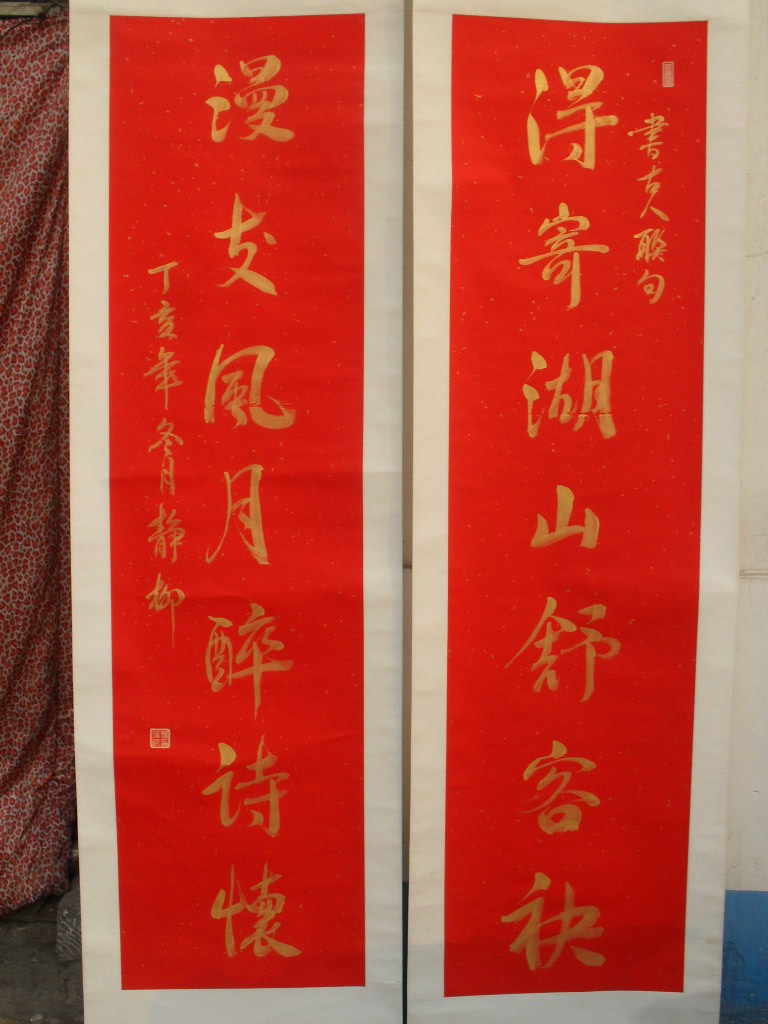 書古人聯句
得寄湖山舒客袂
漫支風月醉詩懷
丁亥年冬月静柳